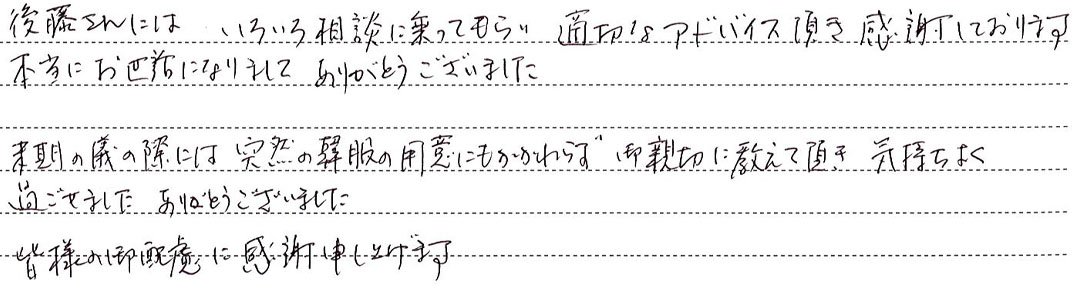 後藤さんには いろいろ相談に乗ってもらい 適切なアドバイス頂き 感謝しております
本当にお世話になりまして ありがとうございました
末期の儀の際には 突然の尊服の用意にもかかわらず 御親切に教えて頂き 気持ちよく
過ごせました ありがとうございました
皆様の御配慮に感謝申し上げます